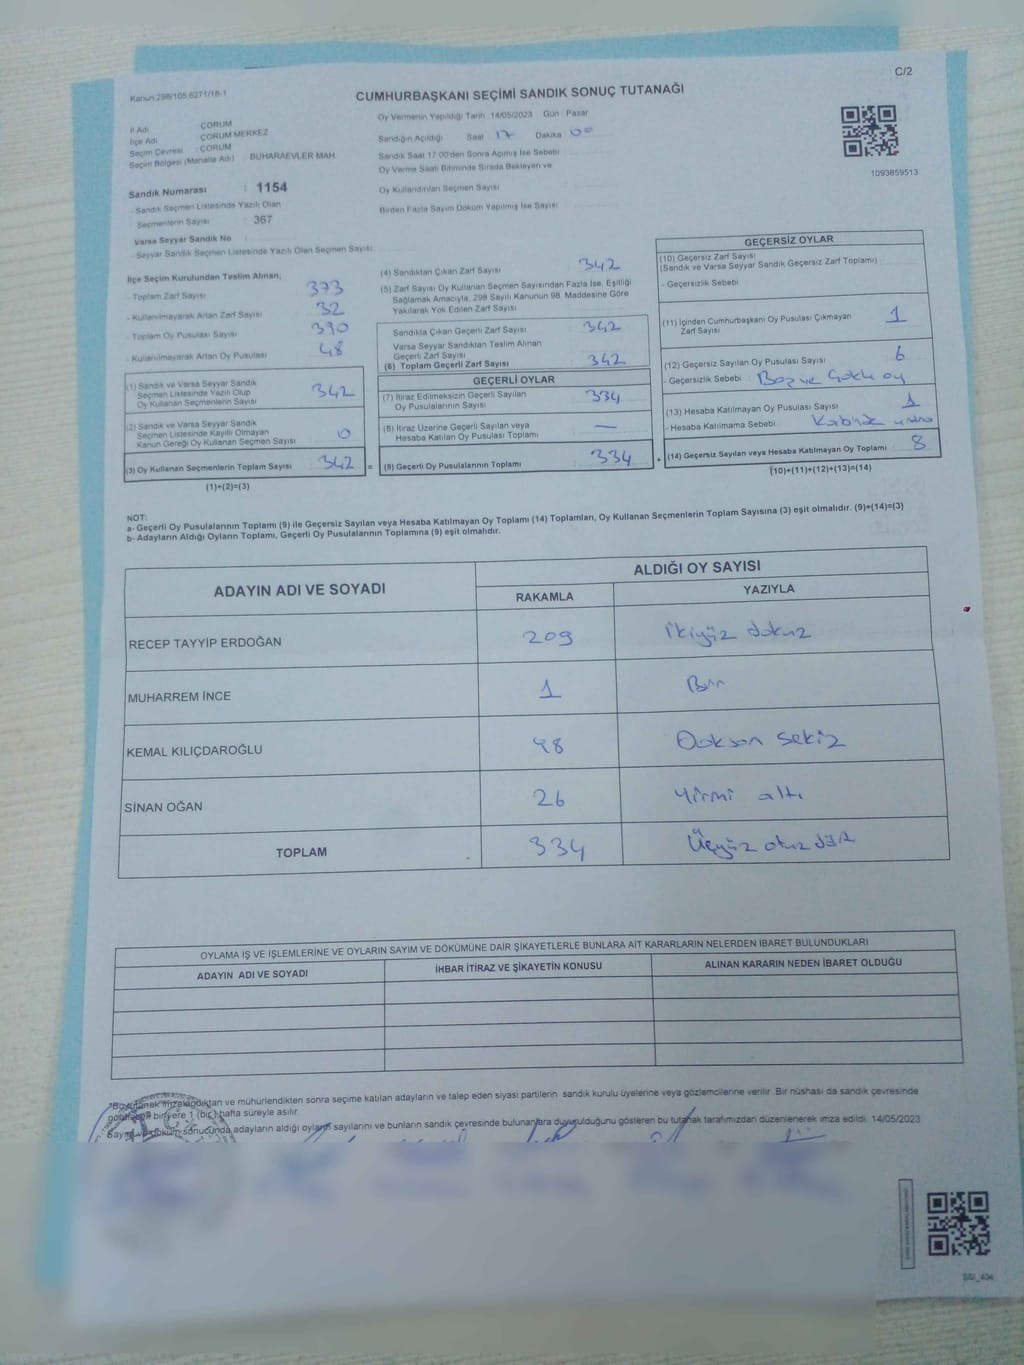 C/2
Kanun:298/105,6271/18-1
CUMHURBAŞKANI SEÇİMİ SANDIK SONUÇ TUTANAĞI
İl Adı : ÇORUM
İlçe Adı : ÇORUM MERKEZ
Seçim Çevresi : ÇORUM
Seçim Bölgesi (Mahalle Adı) : BUHARAEVLER MAH
Sandık Numarası : 1154
- Sandık Seçmen Listesinde Yazılı Olan
Seçmenlerin Sayısı : 367
Varsa Seyyar Sandık No :
- Seyyar Sandık Seçmen Listesinde Yazılı Olan Seçmen Sayısı:
Oy Vermenin Yapıldığı Tarih :14/05/2023 Gün : Pazar
Sandığın Açıldığı Saat 17 Dakika 00
Sandık Saat 17:00'den Sonra Açılmış İse Sebebi
Oy Verme Saati Bitiminde Sırada Bekleyen ve
Oy Kullandırılan Seçmen Sayısı
Birden Fazla Sayım Döküm Yapılmış İse Sayısı
1093859513
İlçe Seçim Kurulundan Teslim Alınan;
- Toplam Zarf Sayısı : 373
- Kullanılmayarak Artan Zarf Sayısı : 32
- Toplam Oy Pusulası Sayısı : 390
- Kullanılmayarak Artan Oy Pusulası : 48
(1) Sandık ve Varsa Seyyar Sandık
Seçmen Listesinde Yazılı Olup
Oy Kullanan Seçmenlerin Sayısı : 342
(2) Sandık ve Varsa Seyyar Sandık
Seçmen Listesinde Kayıtlı Olmayan
Kanun Gereği Oy Kullanan Seçmen Sayısı : 0
(3) Oy Kullanan Seçmenlerin Toplam Sayısı : 342 =
(1)+(2)=(3)
(4) Sandıktan Çıkan Zarf Sayısı : 342
(5) Zarf Sayısı Oy Kullanan Seçmen Sayısından Fazla İse, Eşitliği
Sağlamak Amacıyla, 298 Sayılı Kanunun 98. Maddesine Göre
Yakılarak Yok Edilen Zarf Sayısı
Sandıkta Çıkan Geçerli Zarf Sayısı : 342
Varsa Seyyar Sandıktan Teslim Alınan
Geçerli Zarf Sayısı
(6) Toplam Geçerli Zarf Sayısı : 342
GEÇERLİ OYLAR
(7) İtiraz Edilmeksizin Geçerli Sayılan
Oy Pusulalarının Sayısı : 334
(8) İtiraz Üzerine Geçerli Sayılan veya
Hesaba Katılan Oy Pusulası Toplamı : —
(9) Geçerli Oy Pusulalarının Toplamı : 334 +
GEÇERSİZ OYLAR
(10) Geçersiz Zarf Sayısı
(Sandık ve Varsa Seyyar Sandık Geçersiz Zarf Toplamı) :
- Geçersizlik Sebebi
(11) İçinden Cumhurbaşkanı Oy Pusulası Çıkmayan
Zarf Sayısı : 1
(12) Geçersiz Sayılan Oy Pusulası Sayısı : 6
- Geçersizlik Sebebi : Boş ve Çoklu oy
(13) Hesaba Katılmayan Oy Pusulası Sayısı : 1
- Hesaba Katılmama Sebebi : Kabinde
(14) Geçersiz Sayılan veya Hesaba Katılmayan Oy Toplamı : 8
(10)+(11)+(12)+(13)=(14)
NOT:
a- Geçerli Oy Pusulalarının Toplamı (9) ile Geçersiz Sayılan veya Hesaba Katılmayan Oy Toplamı (14) Toplamları, Oy Kullanan Seçmenlerin Toplam Sayısına (3) eşit olmalıdır. (9)+(14)=(3)
b- Adayların Aldığı Oyların Toplamı, Geçerli Oy Pusulalarının Toplamına (9) eşit olmalıdır.
ADAYIN ADI VE SOYADI
ALDIĞI OY SAYISI
RAKAMLA YAZIYLA
RECEP TAYYİP ERDOĞAN 209 İkiyüz dokuz
MUHARREM İNCE 1 Bir
KEMAL KILIÇDAROĞLU 98 Doksan sekiz
SİNAN OĞAN 26 Yirmi altı
TOPLAM 334 Üçyüz otuz dört
OYLAMA İŞ VE İŞLEMLERİNE VE OYLARIN SAYIM VE DÖKÜMÜNE DAİR ŞİKAYETLERLE BUNLARA AİT KARARLARIN NELERDEN İBARET BULUNDUKLARI
ADAYIN ADI VE SOYADI İHBAR İTİRAZ VE ŞİKAYETİN KONUSU ALINAN KARARIN NEDEN İBARET OLDUĞU
*Bu tutanak imzalandıktan ve mühürlendikten sonra seçime katılan adayların ve talep eden siyasi partilerin sandık kurulu üyelerine veya gözlemcilerine verilir. Bir nüshası da sandık çevresinde
görülecek bir yere 1 (bir) hafta süreyle asılır.
Sayım ve döküm sonucunda adayların aldığı oyların sayılarını ve bunların sandık çevresinde bulunanlara duyurulduğunu gösteren bu tutanak tarafımızdan düzenlenerek imza edildi. 14/05/2023